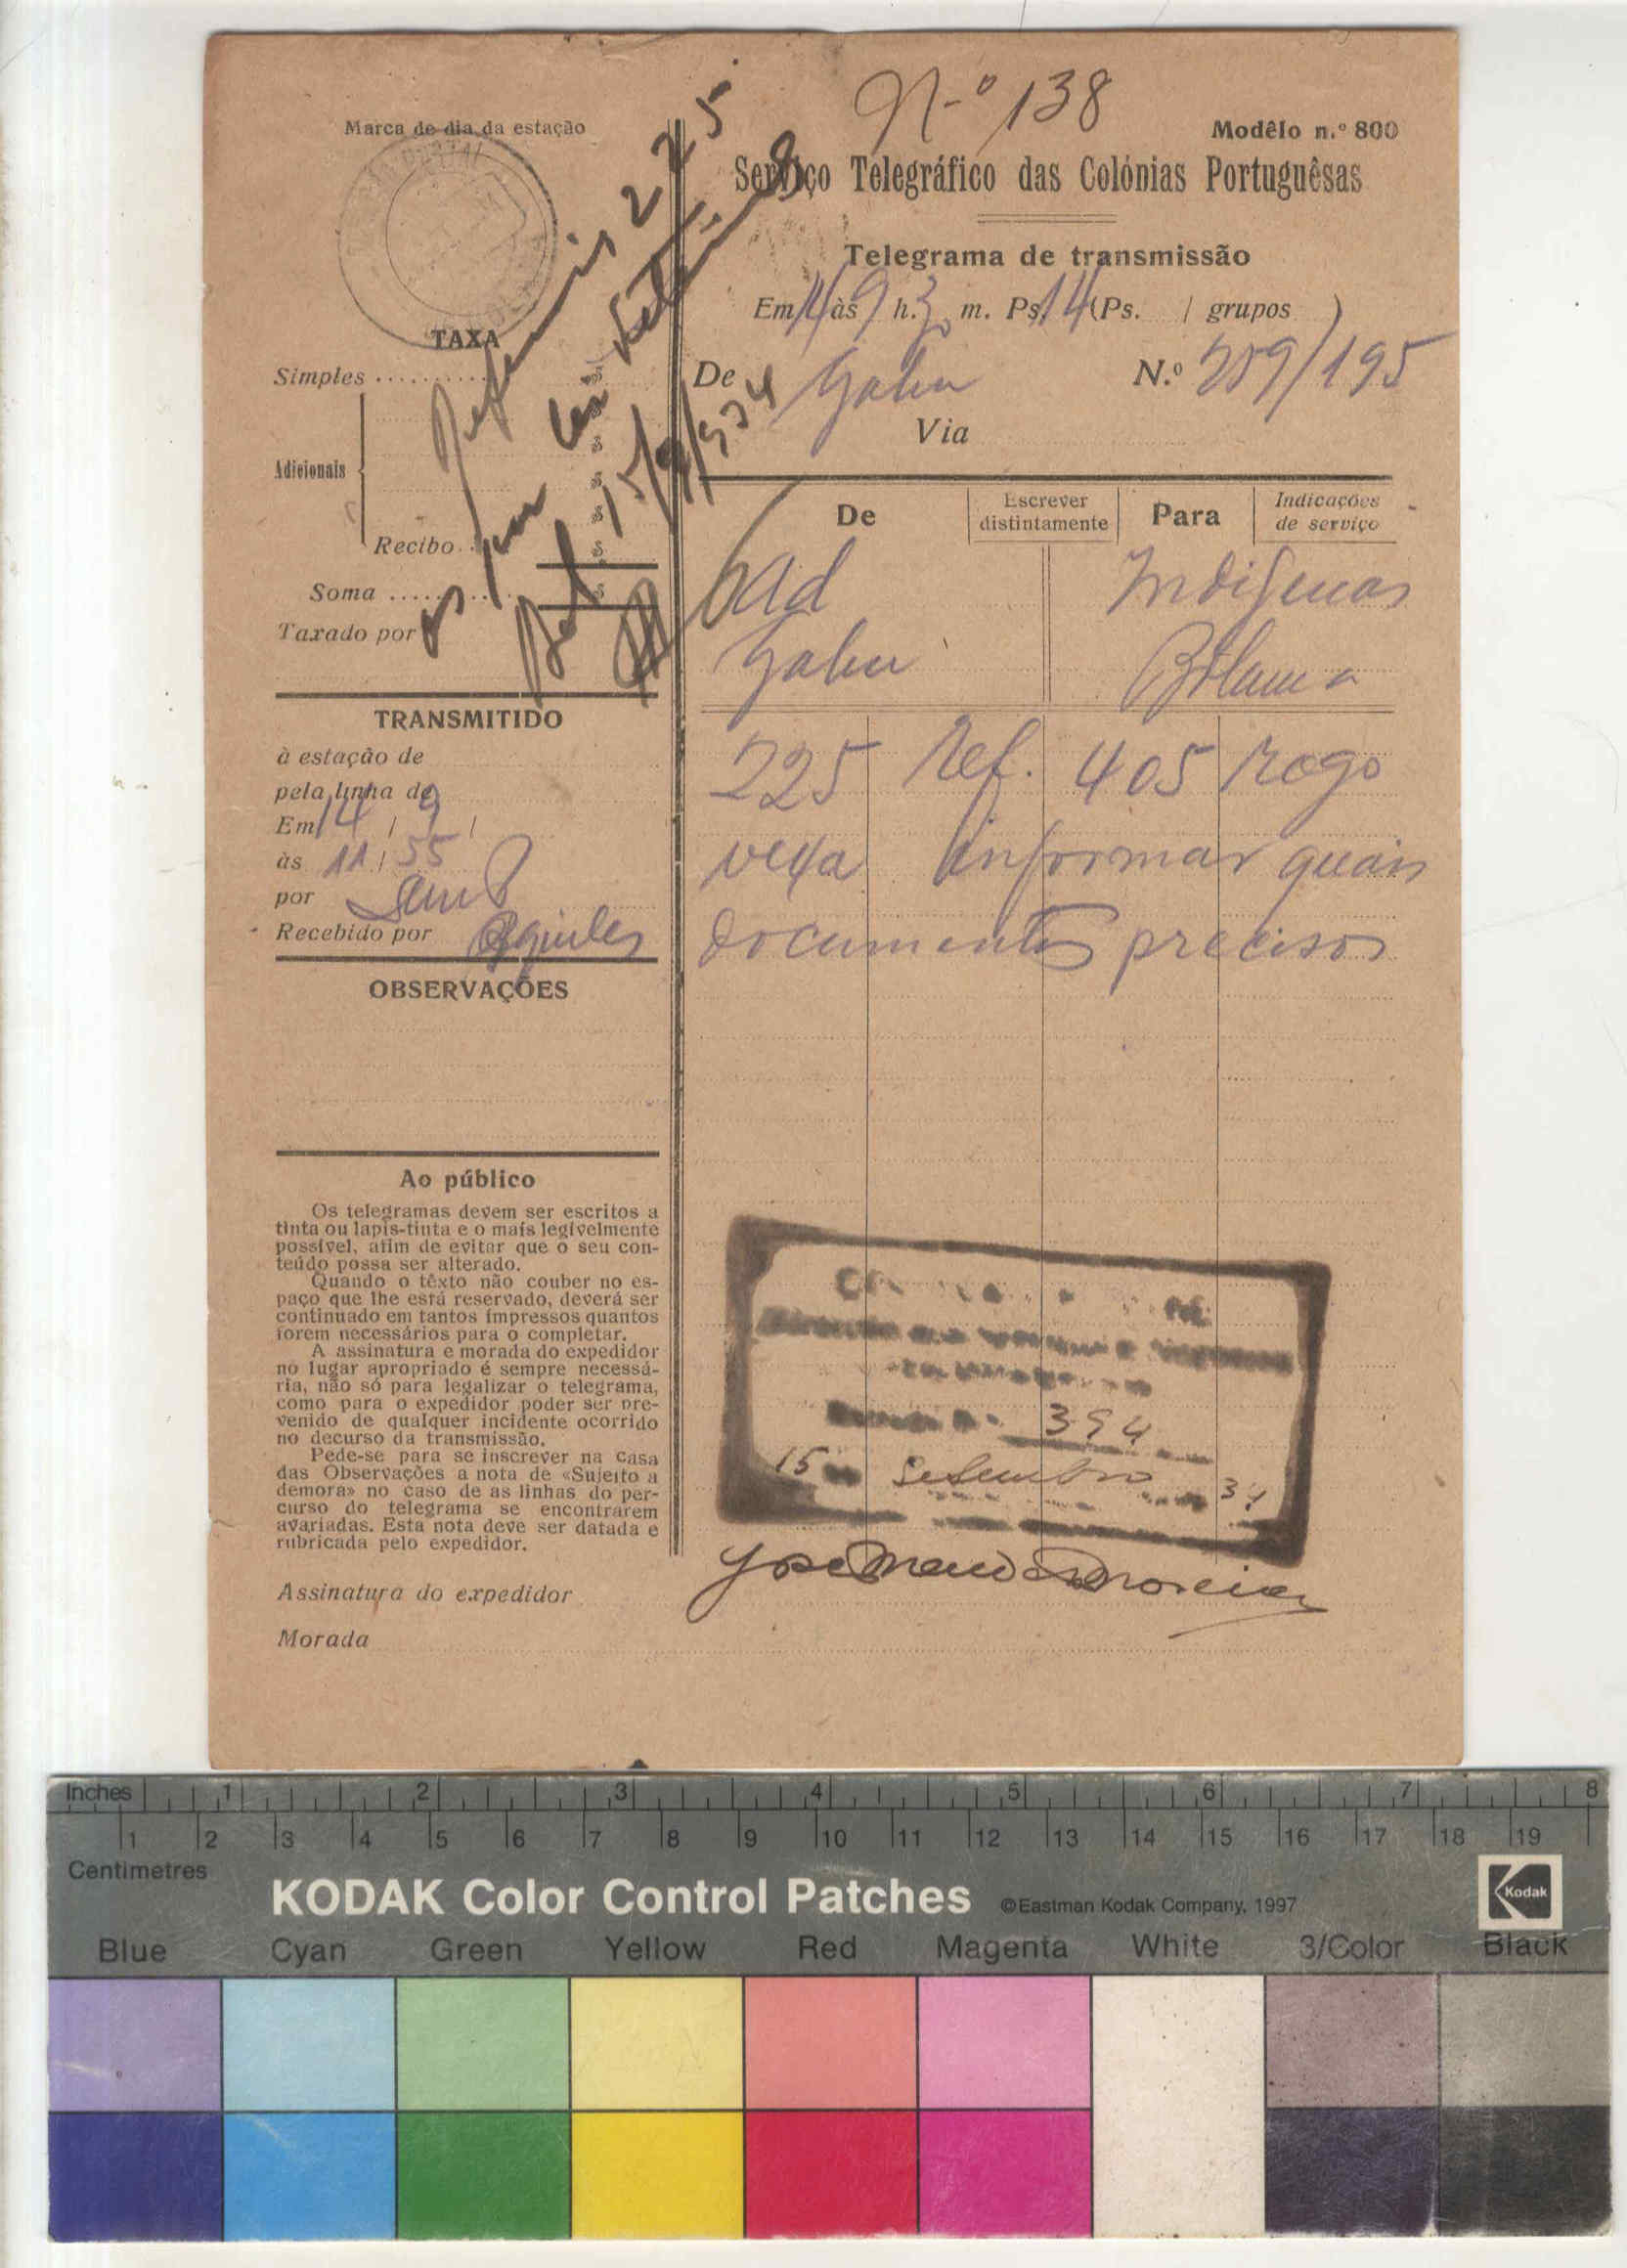 N.º 138
Marca de dia da estação
Modêlo n.º 800
Serviço Telegráfico das Colónias Portuguêsas
Telegrama de transmissão
Em 14 às 9 h. 30 m. Ps. 14 (Ps. / grupos )
De Gabu N.º 259/195
Via
225
15/9/934
TAXA
Simples
Adicionais
Recibo
Soma
Taxado por
De
Escrever distintamente
Para
Indicações de serviço
Ad
Indigenas
Gabu
Bolama
225 Ref. 405 rogo
vexa informar quais
documentos precisos
TRANSMITIDO
à estação de
pela linha de
Em 14 / 9 /
às 11 / 55
por
Recebido por
OBSERVAÇÕES
Ao público
Os telegramas devem ser escritos a
tinta ou lapis-tinta e o mais legivelmente
possível, afim de evitar que o seu con-
teúdo possa ser alterado.
Quando o têxto não couber no es-
paço que lhe está reservado, deverá ser
continuado em tantos impressos quantos
forem necessários para o completar.
A assinatura e morada do expedidor
no lugar apropriado é sempre necessá-
ria, não só para legalizar o telegrama,
como para o expedidor poder ser pre-
venido de qualquer incidente ocorrido
no decurso da transmissão.
Pede-se para se inscrever na casa
das Observações a nota de «Sujeito a
demora» no caso de as linhas do per-
curso do telegrama se encontrarem
avariadas. Esta nota deve ser datada e
rubricada pelo expedidor.
394
15 Setembro 34
Assinatura do expedidor
Morada
Inches 1 2 3 4 5 6 7 8
1 2 3 4 5 6 7 8 9 10 11 12 13 14 15 16 17 18 19
Centimetres
KODAK Color Control Patches ©Eastman Kodak Company, 1997 Kodak
Blue Cyan Green Yellow Red Magenta White 3/Color Black